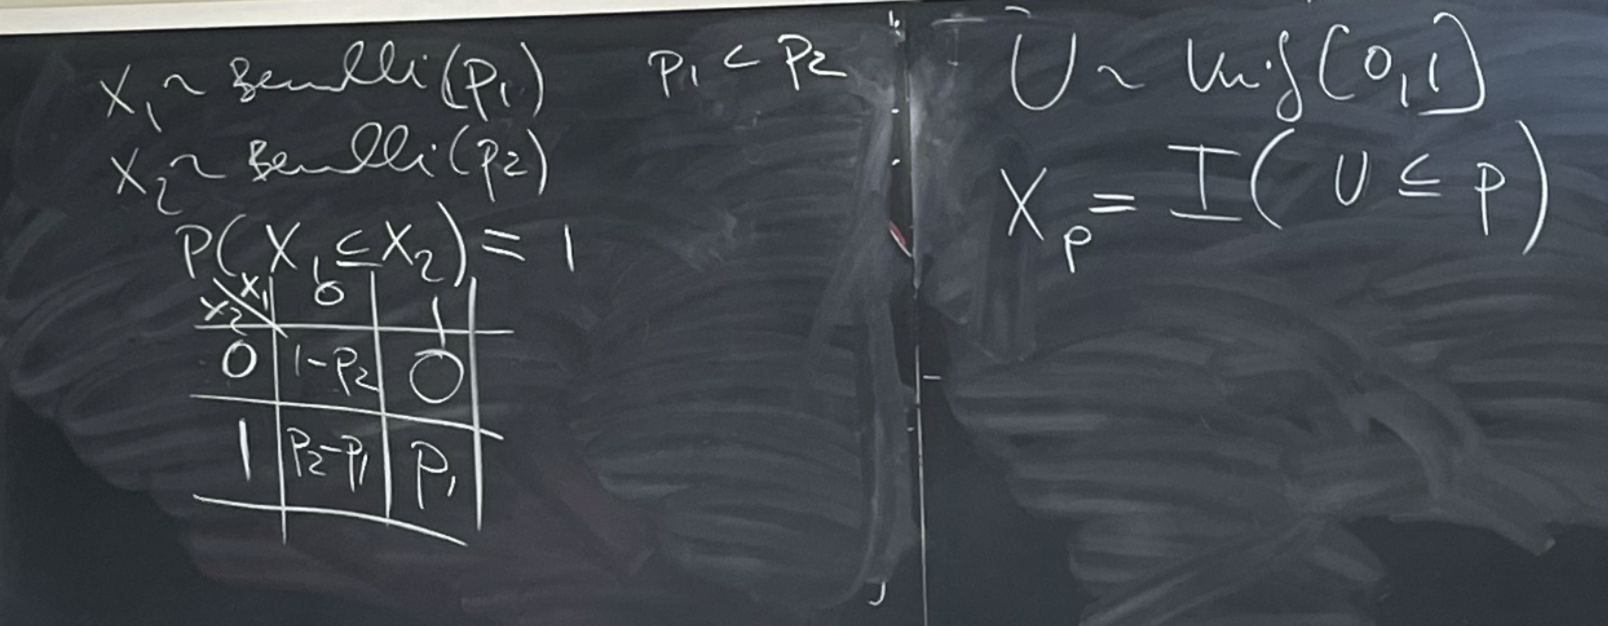 X₁ ~ Bernoulli(p₁) p₁ < p₂
X₂ ~ Bernoulli(p₂)
P(X₁ ≤ X₂) = 1
X₂ \ X₁ 0 1
0 1-p₂ 0
1 p₂-p₁ p₁
U ~ Unif(0,1]
X_p = I(U ≤ p)